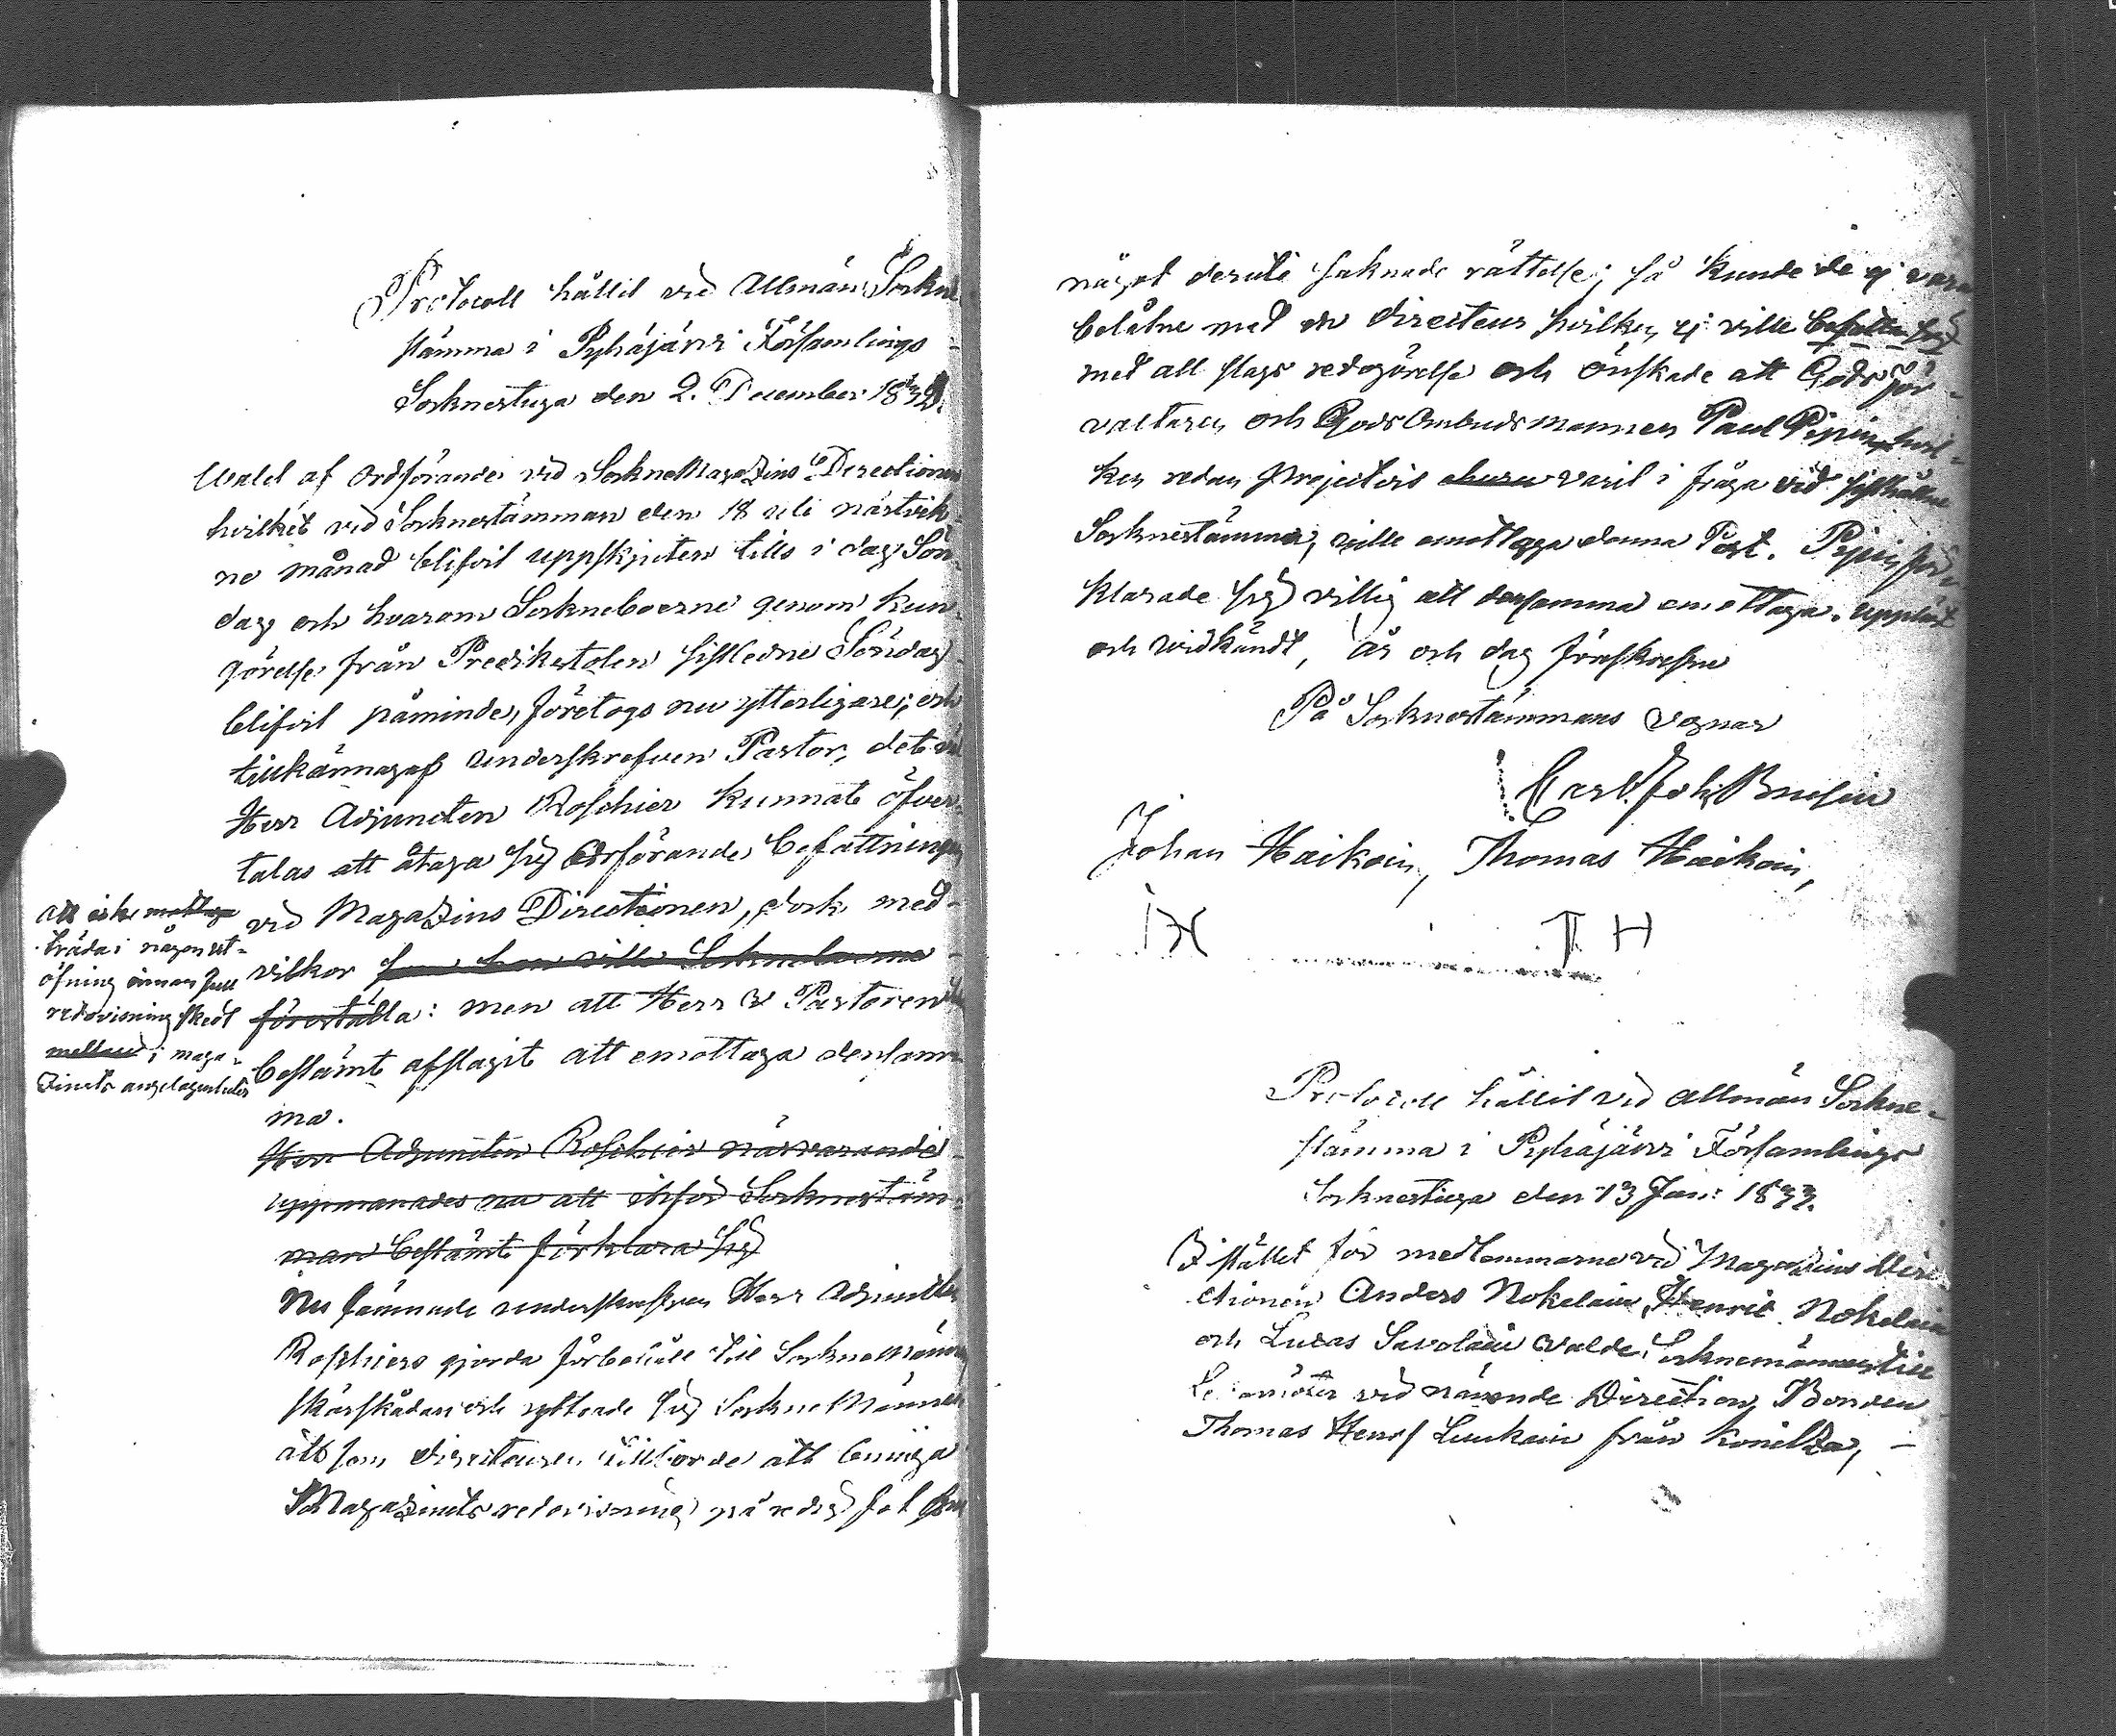 Protocoll hållit vid Allmän Sockne
stämma i Pyhäjärvi Församlings
Socknestuga den 2. December 1832.
Walet af Ordförande vid SockneMagazins Directionen
hvilket vid Socknestämman den 18 uti nästvik
ne månad blifvit uppskjuten tills i dag Sön
dag och hvarom Sockneboerne genom kun
görelse från Predikstolen sistledne Söndag
blifvit påminde, företogs nu ytterligare; och
tillkännagaf underskrefven Pastor, det
Herr Adjuncten Roschier kunnat öfver
talas att åtaga sig Ordförande Befattningen
vid Magazins Directionen, dock med
vilkor som han ville Sockneboerne
föreställa: men att Herr V Pastoren
bestämt afslagit att emottaga densam
ma.
Att icke mottaga
träda i någon ut=
öfning innan full
redovisning skedt
mellan i maga=
zinets angelägenheter
Herr Adjuncten Roschier närvarande
uppmanades nu att inför Socknestäm=
man bestämt förklara sig
Nu lämnade underskrefven Herr Adjuncten
Roschiers gjorda förbehåll till Socknemännens
skärskådan och yttrade sig Sockne Männen
att som Directeuren tillhörde att bringa
Magazinets redovisning på redig fot
något deruti saknade rättelse; så kunde de ej vara
belåtne med en Directeur hvilken ej ville befatta sig
med all slags redogörelse och önskade att Gods för=
valtaren och Gods Ombudsmannen Paul Pipin, hvil=
ken redan Projectvis varit i fråga vid sisthållne
Socknestämma, ville emottaga denna Post. Pipin för=
klarade sig villig att densamma emottaga. Uppläst
och vidkändt, år och dag förskrefne
På Socknestämmans vegnar
Carl Joh Brusiin
Johan Haikoin, Thomas Haikoin,
IH TH
Protocoll hållit vid allmän Sockne=
stämma i Pyhäjärvi Församlings
Socknestuga den 13 Jan: 1833.
I stället för medlemmarne vid Magazins Dire
ctionen Anders Nokelain, Henric Nokelain
och Lucas Savolain valde Socknemännen till
vid nämnde Direction Bonden
Thomas Henrs Luukain från Konitza,